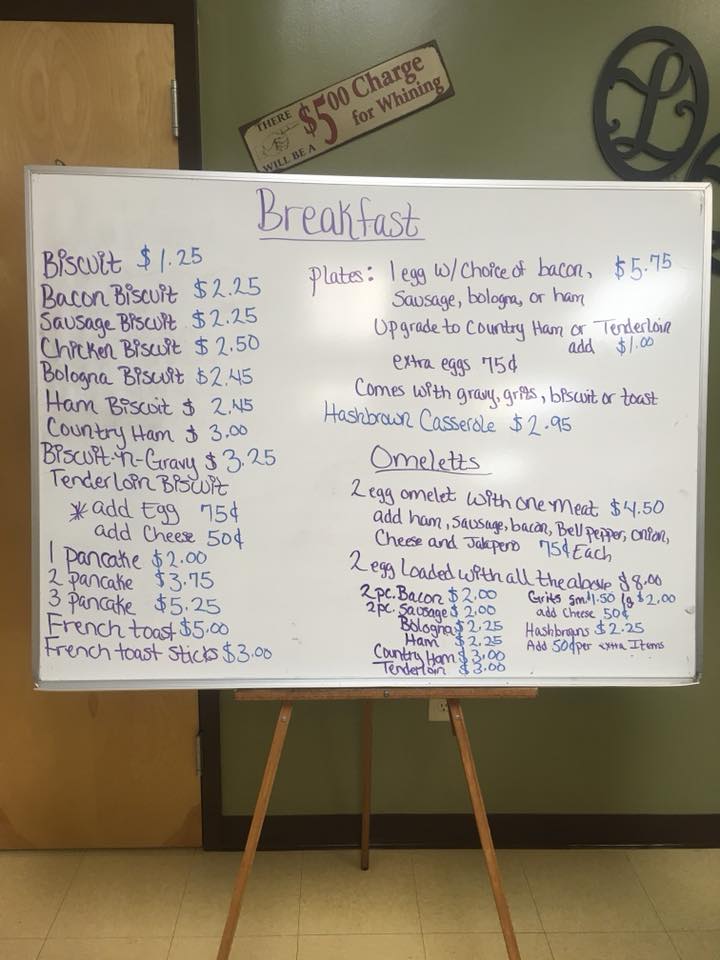 THERE
WILL BE A
$5.00 Charge
for Whining
L
Breakfast
Biscuit $1.25
Bacon Biscuit $2.25
Sausage Biscuit $2.25
Chicken Biscuit $2.50
Bologna Biscuit $2.45
Ham Biscuit $ 2.45
Country Ham $ 3.00
Biscuit-n-Gravy $3.25
Tenderloin Biscuit
* add Egg 75¢
add Cheese 50¢
1 pancake $2.00
2 pancake $3.75
3 pancake $5.25
French toast $5.00
French toast sticks $3.00
plates: 1 egg w/ choice of bacon, $5.75
Sausage, bologna, or ham
Upgrade to Country Ham or Tenderloin
add $1.00
extra eggs 75¢
Comes with gravy, grits, biscuit or toast
Hashbrown Casserole $2.95
Omeletts
2 egg omelet with one meat $4.50
add ham, sausage, bacon, Bell pepper, onion,
Cheese and Jalapeno 75¢ Each
2 egg Loaded with all the above $8.00
2 pc. Bacon $2.00
2 pc. Sausage $2.00
Bologna $2.25
Ham $2.25
Country Ham $3.00
Tenderloin $3.00
Grits Sm $1.50 lg $2.00
add cheese 50¢
Hashbrowns $2.25
Add 50¢ per extra Items